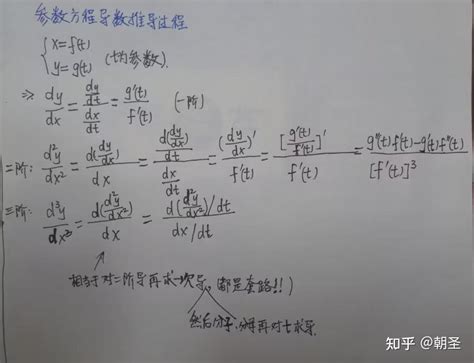 参数方程导数推导过程
{ x=f(t)
{ y=g(t) (t为参数).
⇒ dy/dx = (dy/dt)/(dx/dt) = g'(t)/f'(t) (一阶)
二阶: d²y/dx² = d(dy/dx)/dx = (d(dy/dx)/dt)/(dx/dt) = (dy/dx)'/f'(t) = [g'(t)/f'(t)]'/f'(t) = (g''(t)f'(t)-g'(t)f''(t))/[f'(t)]³
三阶: d³y/dx³ = d(d²y/dx²)/dx = (d(d²y/dx²)/dt)/(dx/dt)
相当于对二阶导再求一次导。(都是套路!!)
然后分子.分母再对t求导.
知乎 @朝圣